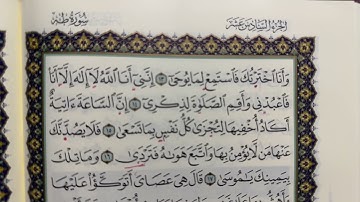 الجزء السادس عشر
سورة طه
وَأَنَا ٱخْتَرْتُكَ فَٱسْتَمِعْ لِمَا يُوحَىٰٓ ١٣ إِنَّنِىٓ أَنَا ٱللَّهُ لَآ إِلَٰهَ إِلَّآ أَنَا۠
فَٱعْبُدْنِى وَأَقِمِ ٱلصَّلَوٰةَ لِذِكْرِىٓ ١٤ إِنَّ ٱلسَّاعَةَ ءَاتِيَةٌ
أَكَادُ أُخْفِيهَا لِتُجْزَىٰ كُلُّ نَفْسٍۭ بِمَا تَسْعَىٰ ١٥ فَلَا يَصُدَّنَّكَ
عَنْهَا مَن لَّا يُؤْمِنُ بِهَا وَٱتَّبَعَ هَوَىٰهُ فَتَرْدَىٰ ١٦ وَمَا تِلْكَ
بِيَمِينِكَ يَٰمُوسَىٰ ١٧ قَالَ هِىَ عَصَاىَ أَتَوَكَّؤُا۟ عَلَيْهَا